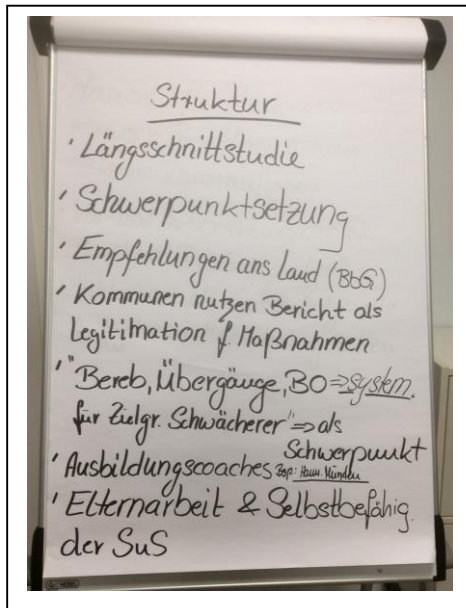 Struktur
' Längsschnittstudie
' Schwerpunktsetzung
' Empfehlungen ans Land (BbG)
' Kommunen nutzen Bericht als
Legitimation f. Maßnahmen
' "Bereb, Übergänge, BO ⇒ system.
für Zielgr. Schwächerer" ⇒ als
Schwerpunkt
' Ausbildungscoaches Bsp: Hann. Münden
' Elternarbeit & Selbstbefähig.
der SuS